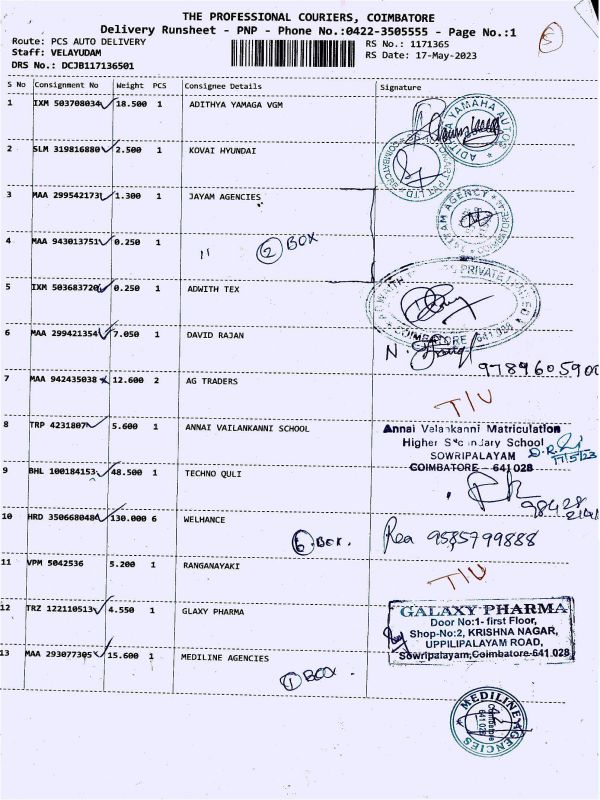 THE PROFESSIONAL COURIERS, COIMBATORE
Delivery Runsheet - PNP - Phone No.:0422-3505555 - Page No.:1
Route: PCS AUTO DELIVERY
RS No.: 1171365
Staff: VELAYUDAM
RS Date: 17-May-2023
DRS No.: DCJB117136501
S No Consignment No Weight PCS Consignee Details Signature
1 IXM 503708034 18.500 1 ADITHYA YAMAGA VGM
2 SLM 319816880 2.500 1 KOVAI HYUNDAI
3 MAA 299542173 1.300 1 JAYAM AGENCIES
4 MAA 943013751 0.250 1 " 2 BOX
5 IXM 503683720 0.250 1 ADWITH TEX
COIMBATORE 641 028
6 MAA 299421354 7.050 1 DAVID RAJAN
9789605900
7 MAA 942435038 12.600 2 AG TRADERS
T/U
8 TRP 4231807 5.600 1 ANNAI VAILANKANNI SCHOOL
Annai Velankanni Matriculation
Higher Secondary School
SOWRIPALAYAM
17/5/23
COIMBATORE - 641 028
9 BHL 100184153 48.500 1 TECHNO QULI
98428
10 HRD 350668048 130.000 6 WELHANCE
6 BOX. 9585799888
11 VPM 5042536 5.200 1 RANGANAYAKI
T/U
12 TRZ 122110513 4.550 1 GLAXY PHARMA
GALAXY PHARMA
Door No:1- first Floor,
Shop-No:2, KRISHNA NAGAR,
UPPILIPALAYAM ROAD,
Sowripalayam,Coimbatore-641 028
13 MAA 293077305 15.600 1 MEDILINE AGENCIES
1 BOX.
MEDILINE AGENCIES
Coimbatore
641 028